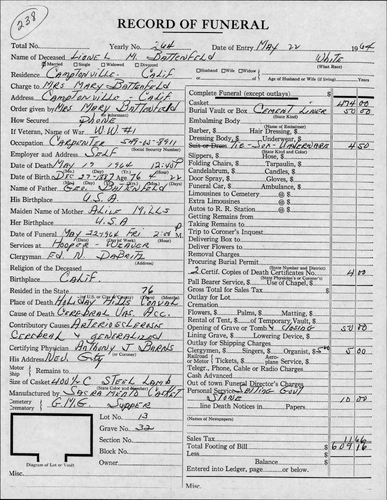 238
RECORD OF FUNERAL
Total No. Yearly No. 264 Date of Entry MAY 22 1964
Name of Deceased LIONEL M. BATTENFELD WHITE
(What Race)
Married Single Widowed Divorced Husband Wife Widow
Age of Husband or Wife (if living) Years
Residence CAMPTONVILLE - CALIF
Charge to MRS MARY BATTENFELD
Address CAMPTONVILLE - CALIF
Order given by MRS MARY BATTENFELD
How Secured PHONE
If Veteran, Name of War WW #1
Occupation CARPENTER
Social Security Number
Employer and Address SELF
Date of Death MAY 19 1964 12:45P
Date of Birth DEC. 27-1887 Age 76 4 22
Name of Father GEO. BATTENFELD
His Birthplace U.S.A
Maiden Name of Mother ALICE MILLS
Her Birthplace U.S.A
Date of Funeral MAY 22 1964 FRI 2:00 P
Services at HOOPER-WEAVER
Clergyman ED. N. DABRITZ
Religion of the Deceased
Birthplace CALIF.
Resided in the State 76
Place of Death HOLIDAY MILLS CONVAL
Cause of Death CEREBRAL VAS. ACC.
Contributory Causes ARTERIOSCLEROSIS
CEREBRAL & GENERALIZED
Certifying Physician ANTHONY J. BARNS
(or Coroner)
His Address NEV. CITY
Motor
Ship Remains to
Size of Casket STEEL LAMB
Manufactured by SACRAMENTO CASKET
Cemetery
Crematory G.M.G. UPPER
Lot No. 13
Grave No. 32
Section No.
Block No.
Owner
Diagram of Lot or Vault
Misc.
Complete Funeral (except outlays) $
Casket 474 00
Burial Vault or Box CEMENT LINER 50 00
(State Kind)
Embalming Body
(Name of Embalmer)
Barber, $ Hair Dressing, $
Dressing Body, $ Underwear, $
Suit or Dress TIE-SOX-UNDERWEAR 4 50
(State Kind and Color)
Slippers, $ Hose, $
Folding Chairs, $ Tarpaulin, $
Candelabrum, $ Candles, $
Door Spray, $ Gloves, $
Funeral Car, $ Ambulance, $
Extra Limousines @ $
Extra Limousines @ $
Autos to R. R. Station @ $
Getting Remains from
Taking Remains to
Trip to Coroner's Inquest
Delivering Box to
Deliver Flowers to
Removal Charges
Procuring Burial Permit
(State Number and District)
2 Certif. Copies of Death Certificates No. 4 00
(State Physician's or Coroner's)
Pall Bearer Service, $ Use of Chapel, $
Gross Total for Sales Tax $
Outlay for Lot
Cremation
Flowers, $ Palms, $ Matting, $
Rental of Tent, $ of Temporary Vault, $
Opening of Grave or Tomb & CLOSING
Lining Grave, $ Lowering Device, $
Outlay for Shipping Charges
Clergymen, $ Singers, $ Organist, $5.00 5 00
Railroad
or Motor Tickets, $ Aeroplane Service, $
Telgr., Phone, Cable or Radio Charges
Cash Advanced
Out of town Funeral Director's Charges
Personal Service SETTING GOV'T
STONE 10 00
line Death Notices in Papers
(Names of Newspapers)
Sales Tax 11 66
Total Footing of Bill $ 609 16
Less
Balance
Entered into Ledger, page or below.
Misc.